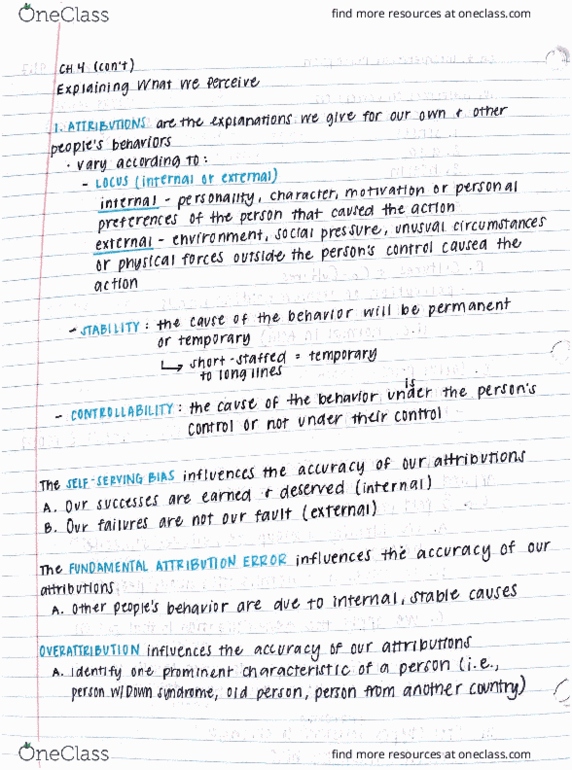 OneClass
find more resources at oneclass.com
CH 4 (con't)
Explaining What We Perceive
1. ATTRIBUTIONS are the explanations we give for our own + other
people's behaviors
• vary according to:
- LOCUS (internal or external)
internal - personality, character, motivation or personal
preferences of the person that caused the action
external - environment, social pressure, unusual circumstances
or physical forces outside the person's control caused the
action
- STABILITY: the cause of the behavior will be permanent
or temporary
↳ short-staffed = temporary
to long lines
is
- CONTROLLABILITY: the cause of the behavior under the person's
control or not under their control
The SELF-SERVING BIAS influences the accuracy of our attributions
A. Our successes are earned + deserved (internal)
B. Our failures are not our fault (external)
The FUNDAMENTAL ATTRIBUTION ERROR influences the accuracy of our
attributions
A. Other people's behavior are due to internal, stable causes
OVERATTRIBUTION influences the accuracy of our attributions
A. Identify one prominent characteristic of a person (i.e.,
person w/Down syndrome, old person, person from another country)
OneClass
find more resources at oneclass.com